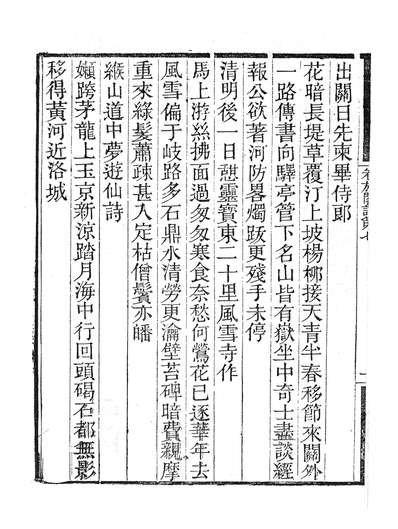 出關日先柬畢侍郎
花暗長堤草覆汀上坡楊柳接天青半春移節來關外
一路傳書向驛亭管下名山皆有嶽坐中奇士盡談經
報公欲著河防畧燭跋更殘手未停
清明後一日憇靈寶東二十里風雪寺作
馬上游絲拂面過匆匆寒食奈愁何鶯花已逐華年去
風雪偏于歧路多石鼎水清勞更瀹壁苔碑暗費親摩
重來綠鬓蕭疎甚入定枯僧鬢亦皤
緱山道中夢遊仙詩
嬾跨茅龍上玉京新涼踏月海中行回頭碣石都無影
移得黃河近洛城